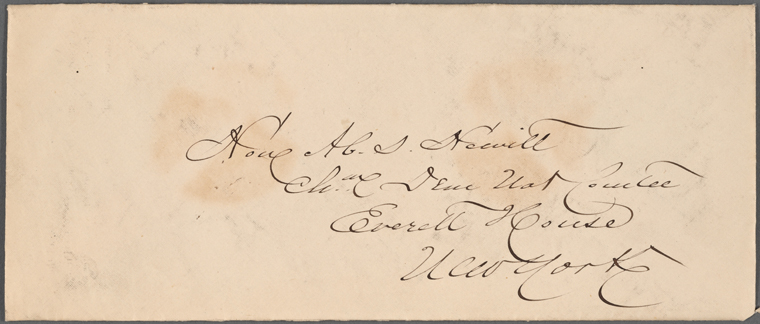 Hon Ab. S. Hewitt
Chn Dem Nat Comtee
Everett House
New York